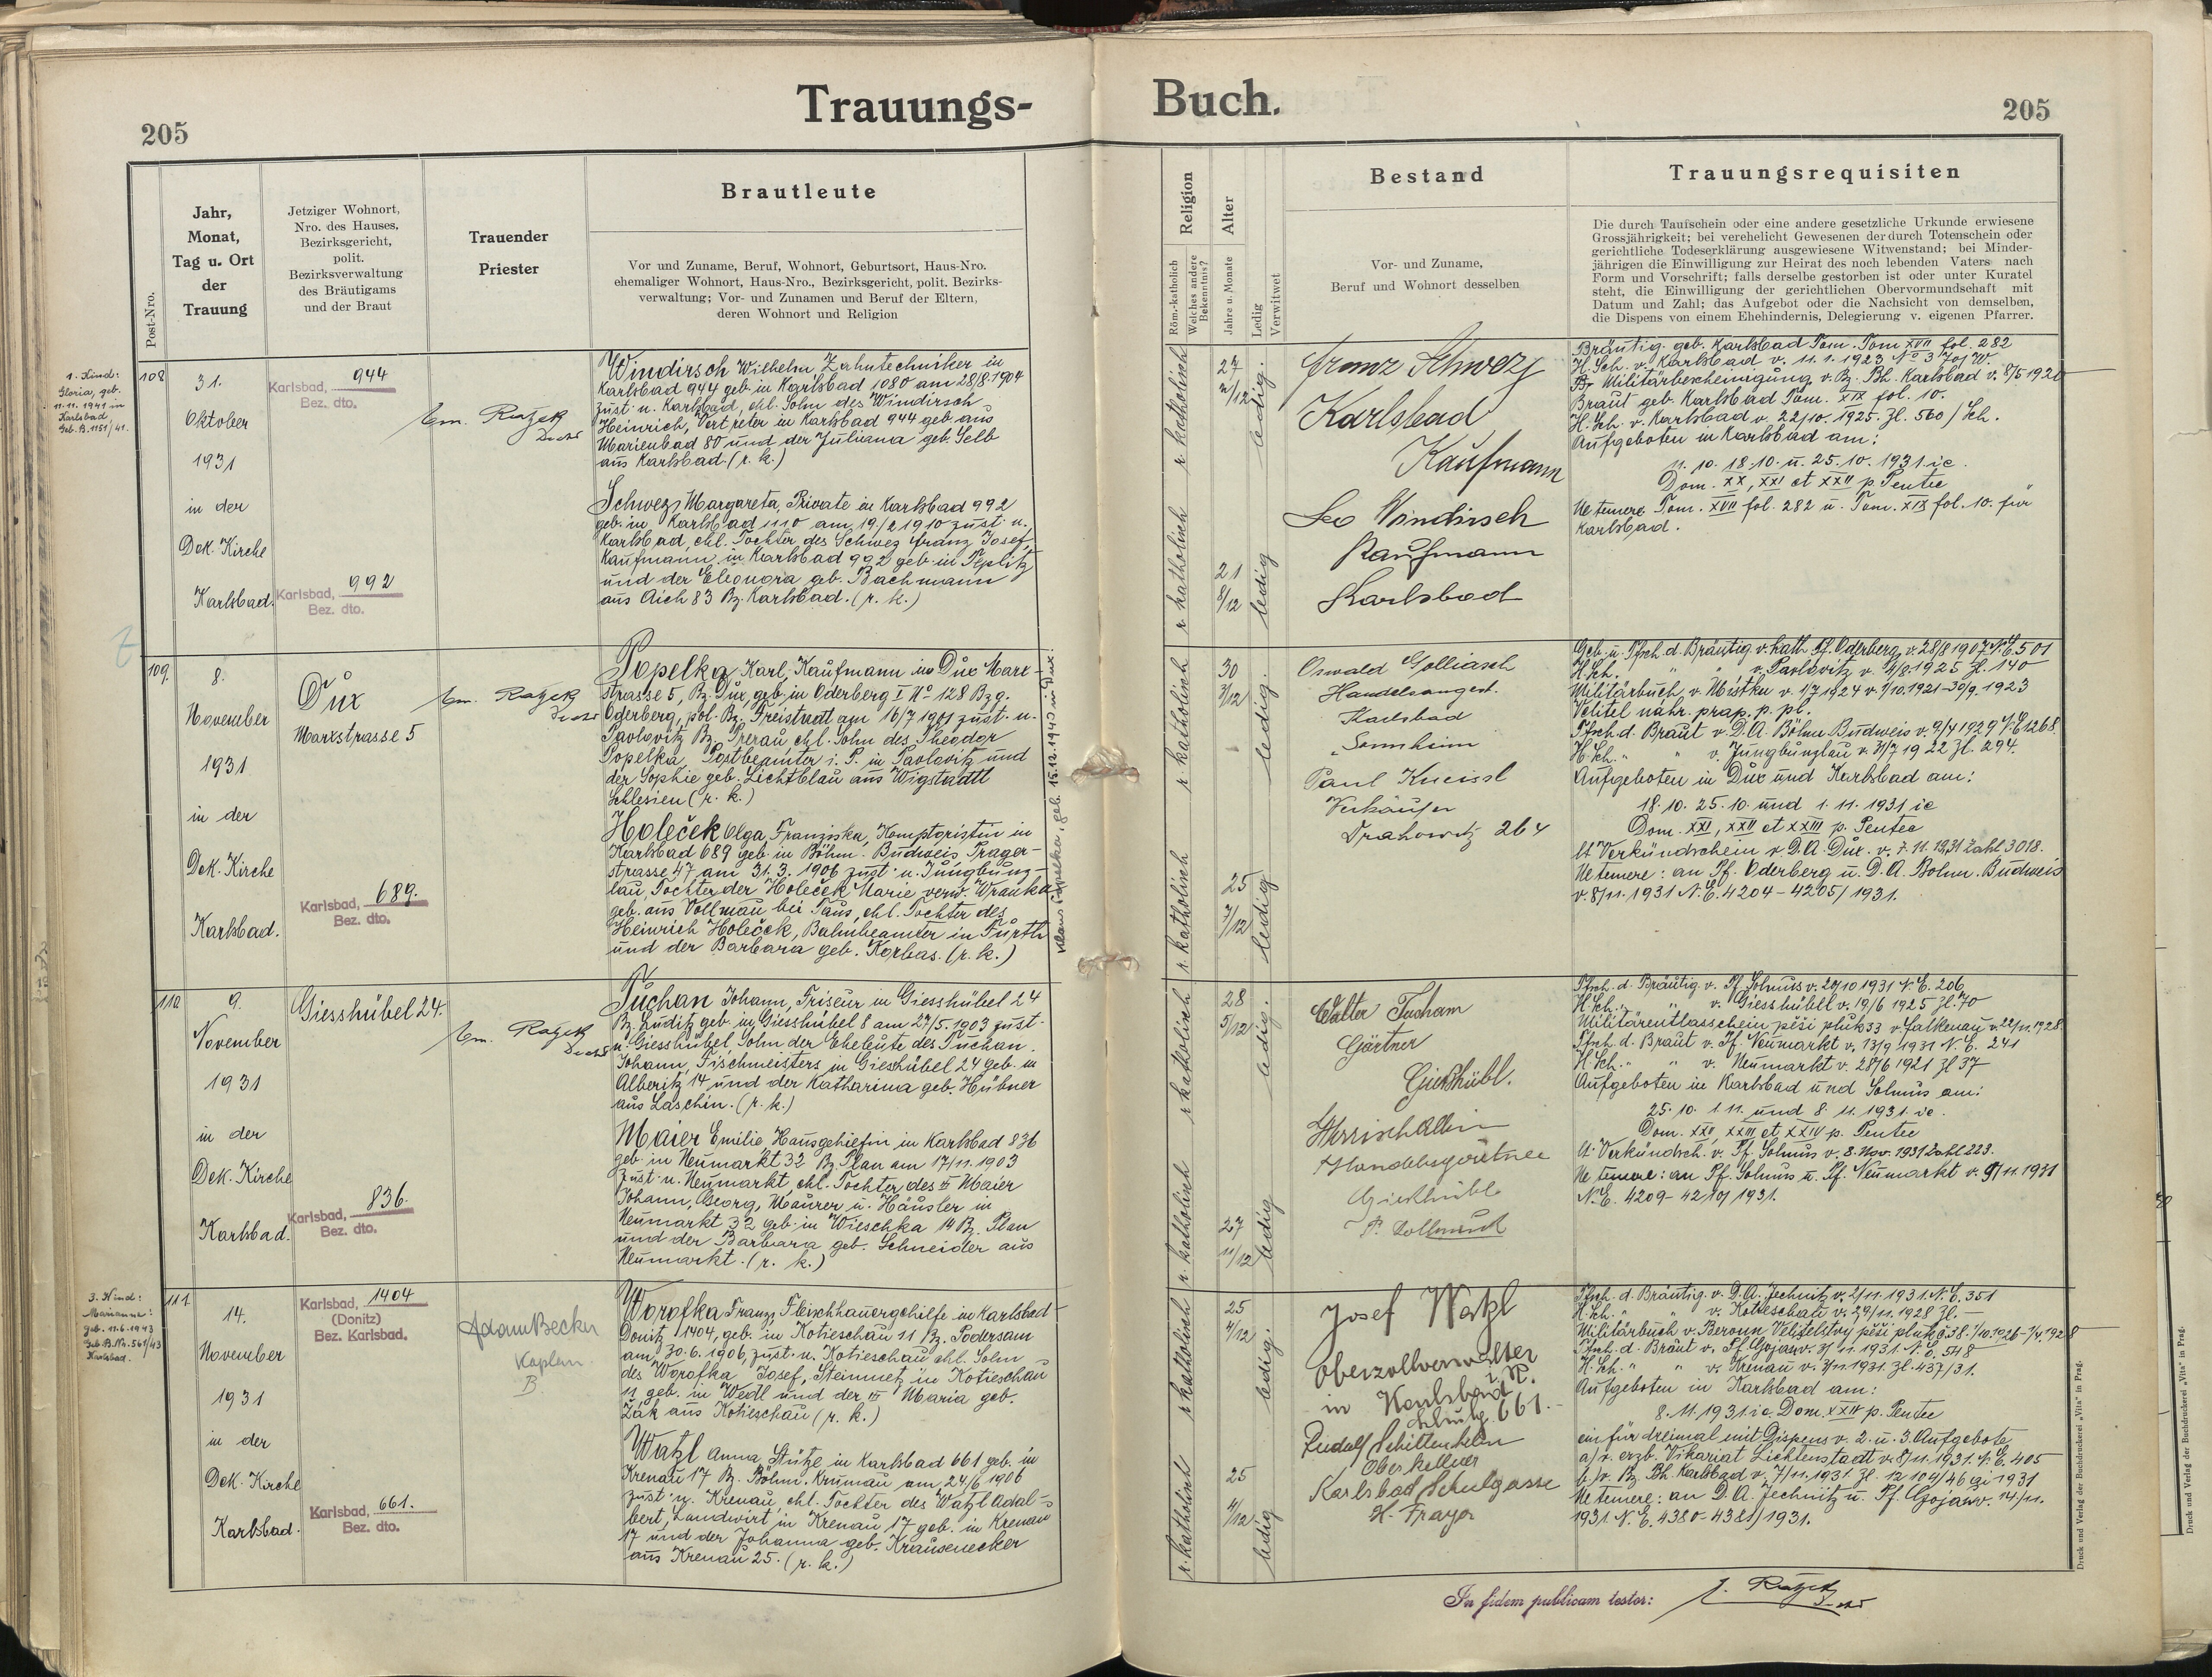 Trauungs-
205
Jahr,
Monat,
Tag u. Ort
der
Trauung
Post-Nro.
Jetziger Wohnort,
Nro. des Hauses,
Bezirksgericht,
polit.
Bezirksverwaltung
des Bräutigams
und der Braut
Trauender
Priester
Brautleute
Vor und Zuname, Beruf, Wohnort, Geburtsort, Haus-Nro.
ehemaliger Wohnort, Haus-Nro., Bezirksgericht, polit. Bezirks-
verwaltung; Vor- und Zunamen und Beruf der Eltern,
deren Wohnort und Religion
1. Kind:
Gloria, geb.
11.11.1941 in
Karlsbad
Geb.B.1151/41.
108
31.
Oktober
1931
in der
Dek. Kirche
Karlsbad.
Karlsbad, 944
Bez. dto.
Karlsbad, 992
Bez. dto.
Em. Ratzek
Windirsch Wilhelm Zahntechniker in
Karlsbad 944 geb. in Karlsbad 1080 am 28/8.1904
zust. n. Karlsbad, ehl. Sohn des Windirsch
Heinrich, Vertreter in Karlsbad 944 geb. aus
Marienbad 80 und der Juliana geb. Selb
aus Karlsbad. (r. k.)
Schwez Margareta, Private in Karlsbad 992
geb. in Karlsbad 1110 am 19/2 1910 zust. n.
Karlsbad, ehl. Tochter des Schwez Franz Josef,
Kaufmann in Karlsbad 992 geb. in Teplitz
und der Eleonora geb. Bachmann
aus Aich 83 Bz. Karlsbad. (r. k.)
109.
8.
November
1931
in der
Dek. Kirche
Karlsbad.
Dux
Marxstrasse 5
Karlsbad, 689.
Bez. dto.
Em. Ratzek
Popelka Karl, Kaufmann in Dux Marx-
strasse 5, Bz. Dux, geb. in Oderberg I No 128 Bzg.
Oderberg, pol. Bz. Freistadt am 16/7 1901 zust. n.
Pavlovitz Bz. Prerau, ehl. Sohn des Theodor
Popelka, Postbeamter i. P. in Pavlovitz und
der Sophie geb. Lichtblau aus Wigstadtl
Schlesien (r. k.)
Holeček Olga Franziska, Komptoristin in
Karlsbad 689 geb. in Böhm. Budweis, Prager-
strasse 47 am 31.3.1906 zust. n. Jungbunz-
lau, Tochter der Holeček Marie verw. Wranka
geb. aus Vollmau bei Taus, ehl. Tochter des
Heinrich Holeček, Bahnbeamter in Fürth
und der Barbara geb. Korbas. (r. k.)
Klaus Popelka, geb. 15.12.1940 in Dux.
110
9.
November
1931
in der
Dek. Kirche
Karlsbad.
Giesshübel 24.
Karlsbad, 836.
Bez. dto.
Em. Ratzek
Tuchan Johann, Friseur in Giesshübel 24
Bz. Luditz geb. in Giesshübel 8 am 27/5.1903 zust.
n. Giesshübel, Sohn der Eheleute des Tuchan
Johann, Tischmeisters in Giesshübel 24 geb. in
Alberitz 14 und der Katharina geb. Hübner
aus Laschin. (r. k.)
Maier Emilie Hausgehilfin in Karlsbad 836
geb. in Neumarkt 32 Bz. Plan am 17/11.1903
zust. n. Neumarkt, ehl. Tochter des Maier
Johann, Georg, Maurer u. Häusler in
Neumarkt 32 geb. in Wieschka 14 Bz. Plan
und der Barbara geb. Schneider aus
Neumarkt. (r. k.)
3. Kind:
Marianne:
geb. 11.6.1943
Geb.B.Nr. 561/43
Karlsbad.
111
14.
November
1931
in der
Dek. Kirche
Karlsbad.
Karlsbad, 1404
(Donitz)
Bez. Karlsbad.
Karlsbad, 661.
Bez. dto.
Adam Becker
Kaplan
B.
Worofka Franz, Fleischhauergehilfe in Karlsbad-
Donitz 1404, geb. in Kotieschau 11 Bz. Podersam
am 30.6.1906, zust. n. Kotieschau ehl. Sohn
des Worofka Josef, Steinmetz in Kotieschau
11 geb. in Wedl und der Maria geb.
Žák aus Kotieschau (r. k.)
Watzl Anna, Stütze in Karlsbad 661 geb. in
Krenau 17 Bz. Böhm. Krumau am 24/6 1906
zust. n. Krenau, ehl. Tochter des Watzl Adal-
bert, Landwirt in Krenau 17 geb. in Krenau
17 und der Johanna geb. Krausenecker
aus Krenau 25. (r. k.)
Buch.
205
Religion
Röm.-katholisch
Welches andere
Bekenntnis?
Alter
Jahre u. Monate
Ledig
Verwitwet
Bestand
Vor- und Zuname,
Beruf und Wohnort desselben
Trauungsrequisiten
Die durch Taufschein oder eine andere gesetzliche Urkunde erwiesene
Grossjährigkeit; bei verehelicht Gewesenen der durch Totenschein oder
gerichtliche Todeserklärung ausgewiesene Witwenstand; bei Minder-
jährigen die Einwilligung zur Heirat des noch lebenden Vaters nach
Form und Vorschrift; falls derselbe gestorben ist oder unter Kuratel
steht, die Einwilligung der gerichtlichen Obervormundschaft mit
Datum und Zahl; das Aufgebot oder die Nachsicht von demselben,
die Dispens von einem Ehehindernis, Delegierung v. eigenen Pfarrer.
r. katholisch
27
2/12
ledig.
r. katholisch
21
8/12
ledig
Franz Schwez
Karlsbad
Kaufmann
Leo Windirsch
Kaufmann
Karlsbad
Bräutig. geb. Karlsbad Tom. Tom XVII fol. 282
H. Sch. v. Karlsbad v. 11.1.1923 No 3
Br. Militärbescheinigung v. Bz. Bh. Karlsbad v. 8/5 192
Braut geb. Karlsbad Tom. XIX fol. 10.
H. Sch. v. Karlsbad v. 22/10.1925. Zl. 560/Sch.
Aufgeboten in Karlsbad am:
11.10. 18.10. u. 25.10.1931. ie.
Dom. XX, XXI et XXII p. Pentec
Ne temere Tom. XVII fol. 282 u. Tom. XIX fol. 10. für
Karlsbad.
r. katholisch
30
3/12
ledig.
r. katholisch
25
7/12
ledig
Oswald Golliasch
Handelsangest.
Karlsbad
„Sonnheim
Paul Kneissl
Verkäufer
Drahowitz 264
Geb. u. Tfsch. d. Bräutig. v. kath. Pf. Oderberg v. 28/8 1907 N.E. 501
H. Sch. " " v. Pavlovitz v. 4/8.1925 Zl. 140
Militärbuch v. Mistku v. 1/7 1924 v. 1/10.1921-30/9.1923
Velitel náhr. prap. p. pl.
Tfsch. d. Braut v. D. A. Böhm Budweis v. 9/4 1929 N.E 1268.
H. Sch. " v. Jungbunzlau v. 31/7 1922 Zl. 294.
Aufgeboten in Dux und Karlsbad am:
18.10. 25.10. und 1.11.1931 ie
Dom. XXI, XXII et XXIII p. Pentec
lt. Verkündschein v. D. A. Dux. v. 7.11.1931 Zahl 3018.
Ne temere: an Pf. Oderberg u. D. A. Bohm. Budweis
v. 8/11.1931 N.E. 4204-4205/1931.
r. katholisch
28
5/12
ledig.
r. katholisch
27
11/12
ledig
Walter Tucham
Gärtner
Gießhübl.
Handelsgärtner
Giesshübl
Tfsch. d. Bräutig. v. Pf. Solmus v. 29/10 1931 N.E. 206
H. Sch. " " v. Giesshübel v. 19/6 1925 Zl. 70
Militärentlasschein pěší pluk 33 v. Falkenau v. 22/11.1928.
Tfsch. d. Braut v. Pf. Neumarkt v. 13/9 1931 N.E. 241
H. Sch. " " v. Neumarkt v. 28/6 1921 Zl 37
Aufgeboten in Karlsbad und Solmus am:
25.10. 1.11. und 8.11.1931. ie.
Dom. XXII, XXIII et XXIV p. Pentec
lt. Verkündsch. v. Pf. Solmus v. 8. Nov. 1931 Zahl 223.
Ne temere: an Pf. Solmus u. Pf. Neumarkt v. 9/11.1931
N.E. 4209-4210/1931.
r. katholisch
25
4/12
ledig.
r. katholisch
25
4/12
ledig
Josef Watzl
Oberzollverwalter
i. P.
in Karlsbad
661.
Rudolf Schittenhelm
Oberkellner
Karlsbad Schulgasse
Tfsch. d. Bräutig. v. D. A. Jechnitz v. 2/11.1931. N.E. 351
H. Sch. " " v. Kotieschau v. 29/11.1928 Zl. —
Militärbuch v. Beroun Velitelstvy pěší pluk č. 38. 1/10.1926-1/4.1928
Tfsch. d. Braut v. Pf. Gojau v. 3/11.1931. N.E. 548
H. Sch. " " v. Krenau v. 3/11.1931. Zl. 437/31.
Aufgeboten in Karlsbad am:
8.11.1931. ie. Dom. XXIV p. Pentec
ein für dreimal mit Dispens v. 2. u. 3. Aufgebote
a/v. erzb. Vikariat Lichtenstadt v. 8/11.1931. N.E. 405
b/v. Bz. Bh. Karlsbad v. 7/11.1931. Zl.
Ne temere: an D. A. Jechnitz u. Pf. Gojau v. 14/11.
1931. N.E. 4380-4381/1931.
In fidem publicam testor:
Druck und Verlag der Buchdruckerei „Vita" in Prag.
Druck und Verlag der Buchdruckerei „Vita" in Prag.